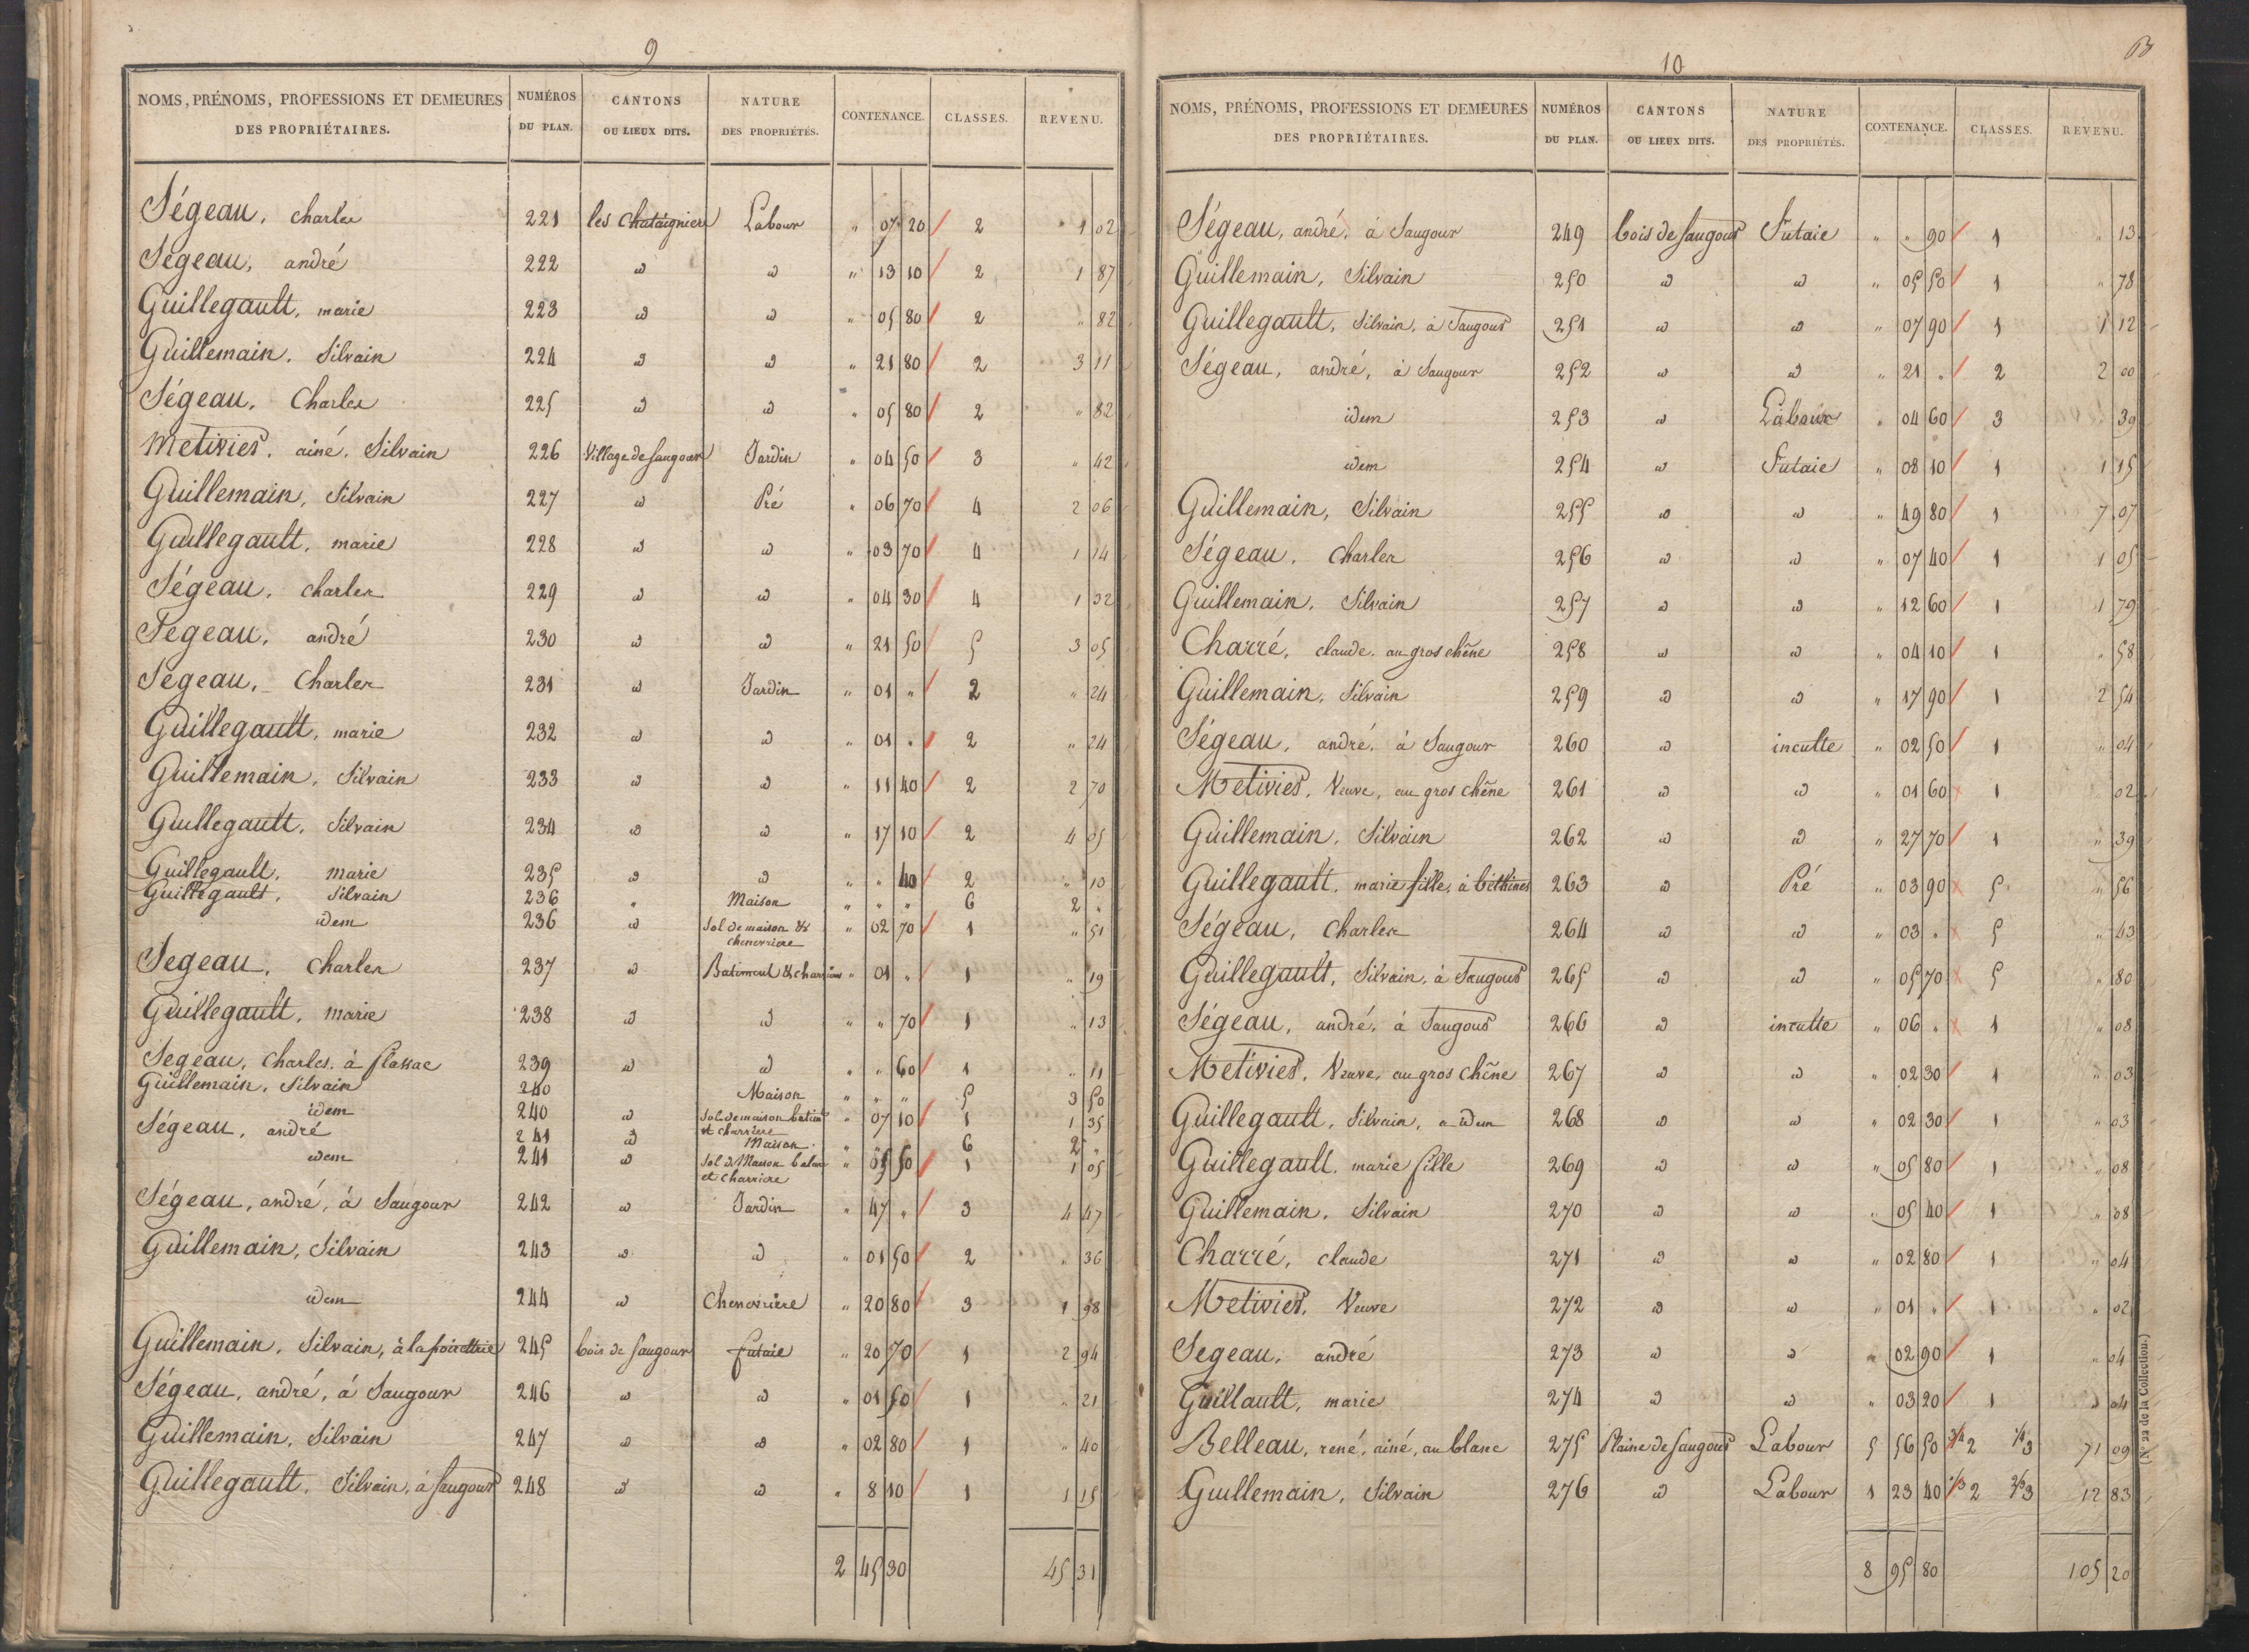 9
NOMS, PRÉNOMS, PROFESSIONS ET DEMEURES DES PROPRIÉTAIRES. NUMÉROS DU PLAN. CANTONS OU LIEUX DITS. NATURE DES PROPRIÉTÉS. CONTENANCE. CLASSES. REVENU.
Ségeau, charles 221 les chataigniers Labour " 07 20 2 1 02
Ségeau, andré 222 id id " 13 10 2 1 87
Guillegault, marie 223 id id " 05 80 2 " 82
Guillemain, Silvain 224 id id " 21 80 2 3 11
Ségeau, Charles 225 id id " 05 80 2 " 82
Metivier, ainé, Silvain 226 Village de Saugour Jardin " 04 50 3 " 42
Guillemain, Silvain 227 id Pré " 06 70 4 2 06
Guillegault, marie 228 id id " 03 70 4 1 14
Ségeau, charles 229 id id " 04 30 4 1 32
Ségeau, andré 230 id id " 21 50 5 3 05
Segeau, Charles 231 id Jardin " 01 " 2 " 24
Guillegault, marie 232 id id " 01 " 2 " 24
Guillemain, Silvain 233 id id " 11 40 2 2 70
Guillegault, Silvain 234 id id " 17 10 2 4 05
Guillegault, marie 235 id id " " 40 2 " 10
Guillegault, Silvain 236 " Maison " " " 6 2 "
idem 236 id Sol de maison & " 02 70 1 " 51
chenevriere
Segeau, Charles 237 id Batiment & charriere " 01 " 1 " 19
Guillegault, marie 238 id id " " 70 1 " 13
Segeau, Charles, à Plassac 239 id id " " 60 1 " 11
Guillemain, Silvain 240 Maison " " " 5 3 50
idem 240 id Sol de maison batimt " 07 10 1 1 35
et charriere
Ségeau, andré 241 id Maison " " 6 2 "
idem 241 id Sol de Maison batimt " 05 50 1 1 05
et charriere
Ségeau, andré, à Saugour 242 id Jardin " 47 " 3 4 47
Guillemain, Silvain 243 id id " 01 50 2 " 36
idem 244 id Chenevriere " 20 80 3 1 98
Guillemain, Silvain, à la poiretterie 245 bois de Saugour futaie " 20 70 1 2 94
Ségeau, andré, à Saugour 246 id id " 01 50 1 " 21
Guillemain, Silvain 247 id id " 02 80 1 " 40
Guillegault, Silvain, à Saugour 248 id id " 8 10 1 1 15
2 45 30 45 31
10
NOMS, PRÉNOMS, PROFESSIONS ET DEMEURES DES PROPRIÉTAIRES. NUMÉROS DU PLAN. CANTONS OU LIEUX DITS. NATURE DES PROPRIÉTÉS. CONTENANCE. CLASSES. REVENU.
Ségeau, andré, à Saugour 249 bois de Saugour Futaie " " 90 1 " 13
Guillemain, Silvain 250 id id " 05 50 1 " 78
Guillegault, Silvain, à Saugour 251 id id " 07 90 1 1 12
Ségeau, andré, à Saugour 252 id id " 21 " 2 2 00
idem 253 id Labour " 04 60 3 " 39
idem 254 id Futaie " 08 10 1 1 15
Guillemain, Silvain 255 id id " 49 80 1 7 07
Ségeau, Charles 256 id id " 07 40 1 1 05
Guillemain, Silvain 257 id id " 12 60 1 1 79
Charré, claude, au gros chêne 258 id id " 04 10 1 " 58
Guillemain, Silvain 259 id id " 17 90 1 2 54
Ségeau, andré, à Saugour 260 id inculte " 02 50 1 " 04
Metivier, Veuve, au gros chêne 261 id id " 01 60 1 02
Guillemain, Silvain 262 id id " 27 70 1 " 39
Guillegault, marie fille, à béthines 263 id Pré " 03 90 5 " 56
Ségeau, Charles 264 id id " 03 " 5 " 43
Guillegault, Silvain, à Saugour 265 id id " 05 70 5 " 80
Ségeau, andré, à Saugour 266 id inculte " 06 " 1 " 08
Metivier, Veuve, au gros chêne 267 id id " 02 30 1 " 03
Guillegault, Silvain, a idem 268 id id " 02 30 1 " 03
Guillegault, marie fille 269 id id " 05 80 1 " 08
Guillemain, Silvain 270 id id " 05 40 1 " 08
Charré, claude 271 id id " 02 80 1 " 04
Metivier, Veuve 272 id id " 01 " 1 " 02
Segeau, andré 273 id id " 02 90 1 " 04
Guillault, marie 274 id id " 03 20 1 " 04
Belleau, rené, ainé, au blanc 275 Plaine de Saugour Labour 5 56 50 3/4 2 1/4 3 71 09
Guillemain, Silvain 276 id Labour 1 23 40 1/3 2 2/3 3 12 83
8 95 80 105 20
(N° 22 de la Collection.)